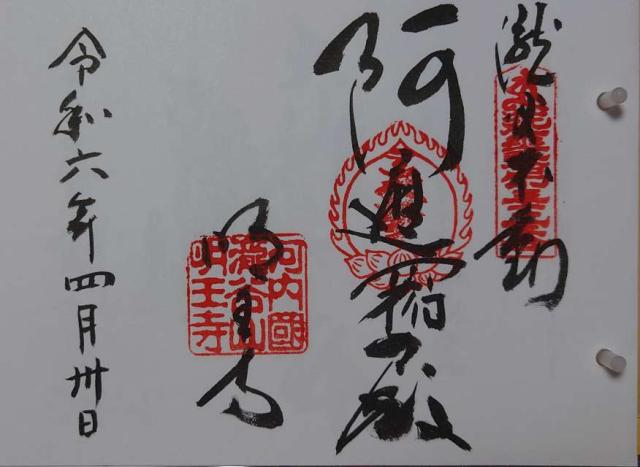 瀧谷不動
阿遮羅殿
明王寺
河内國
瀧谷山
明王寺
令和六年四月卅日